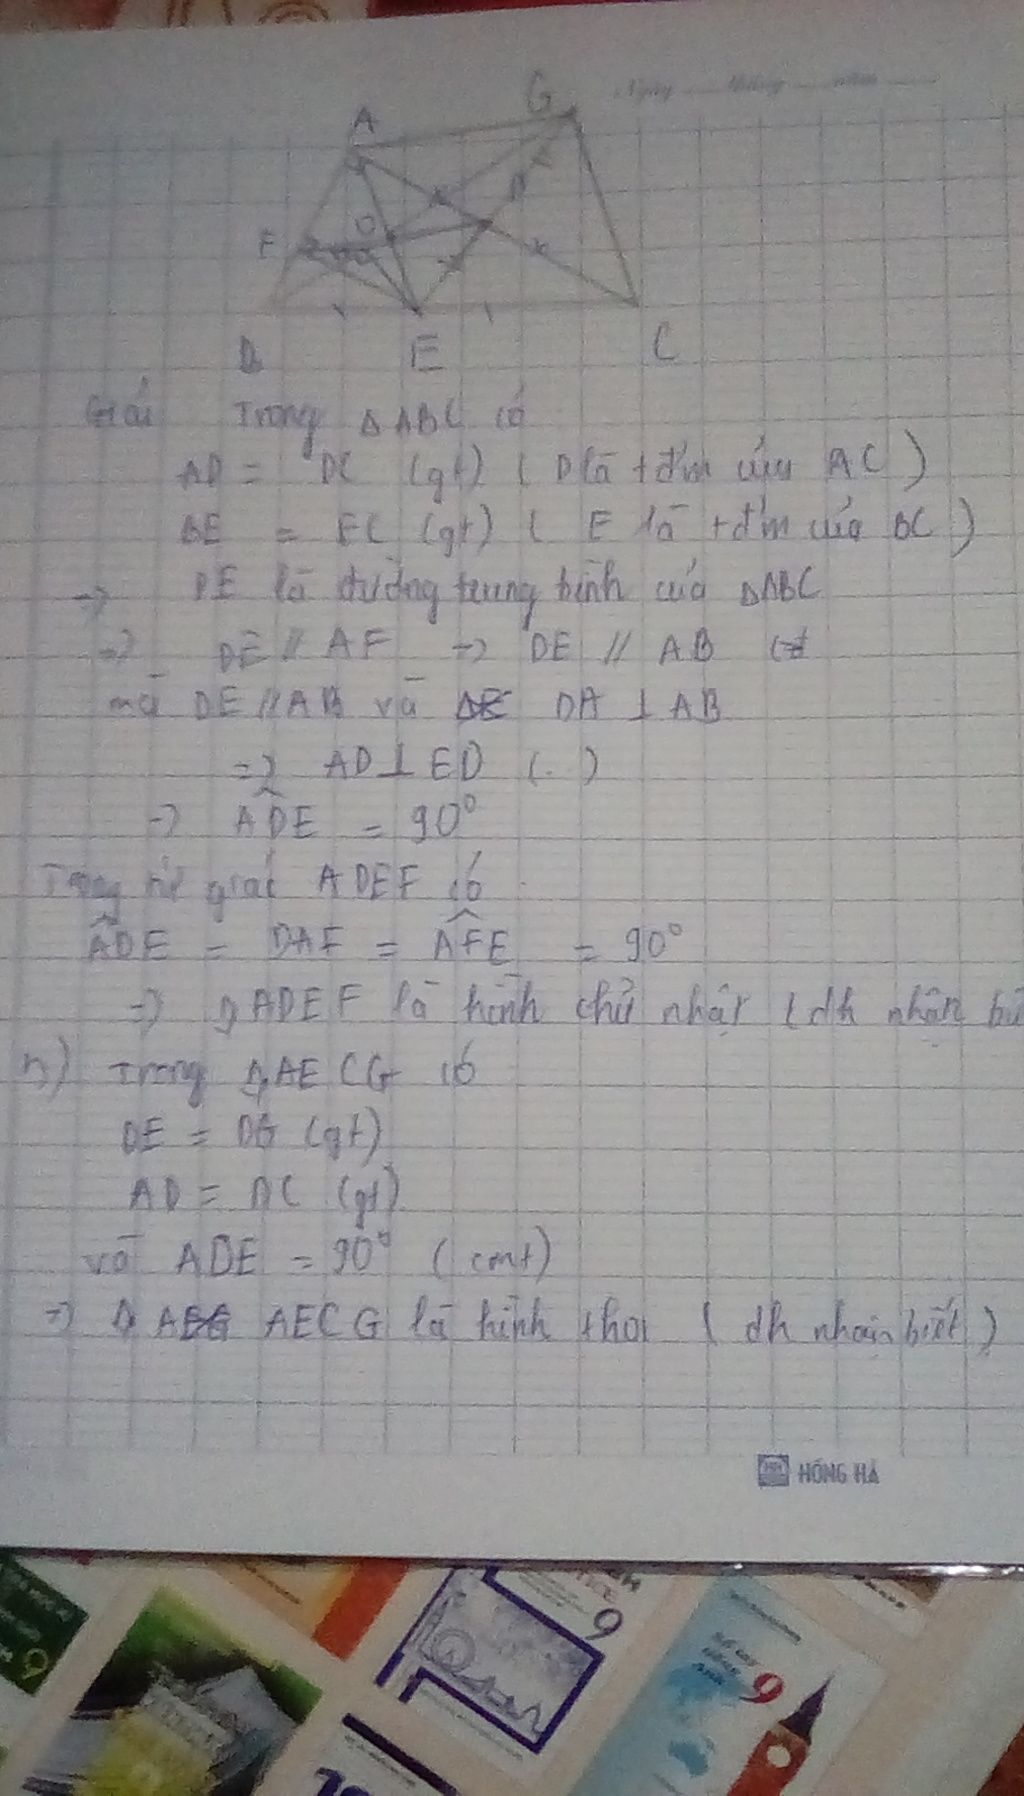 Ngày tháng năm
A G
F O D
B E C
Giải Trong ΔABC có
AD = DC (gt) ( D là tđ'm của AC )
BE = EC (gt) ( E là tđ'm của BC )
=> DE là đường trung bình của ΔABC
=> DE // AF => DE // AB
mà DE // AB và DA ⊥ AB
=> AD ⊥ ED (. )
=> ADE = 90°
Trong tứ giác ADEF có
ADE = DAF = AFE = 90°
=> ADEF là hình chữ nhật ( dh nhận bi
Trong AECG có
DE = DG (gt)
AD = DC (gt)
và ADE = 90° ( cmt )
=> AECG là hình thoi ( dh nhận biết )
HỒNG HÀ
9
9
9